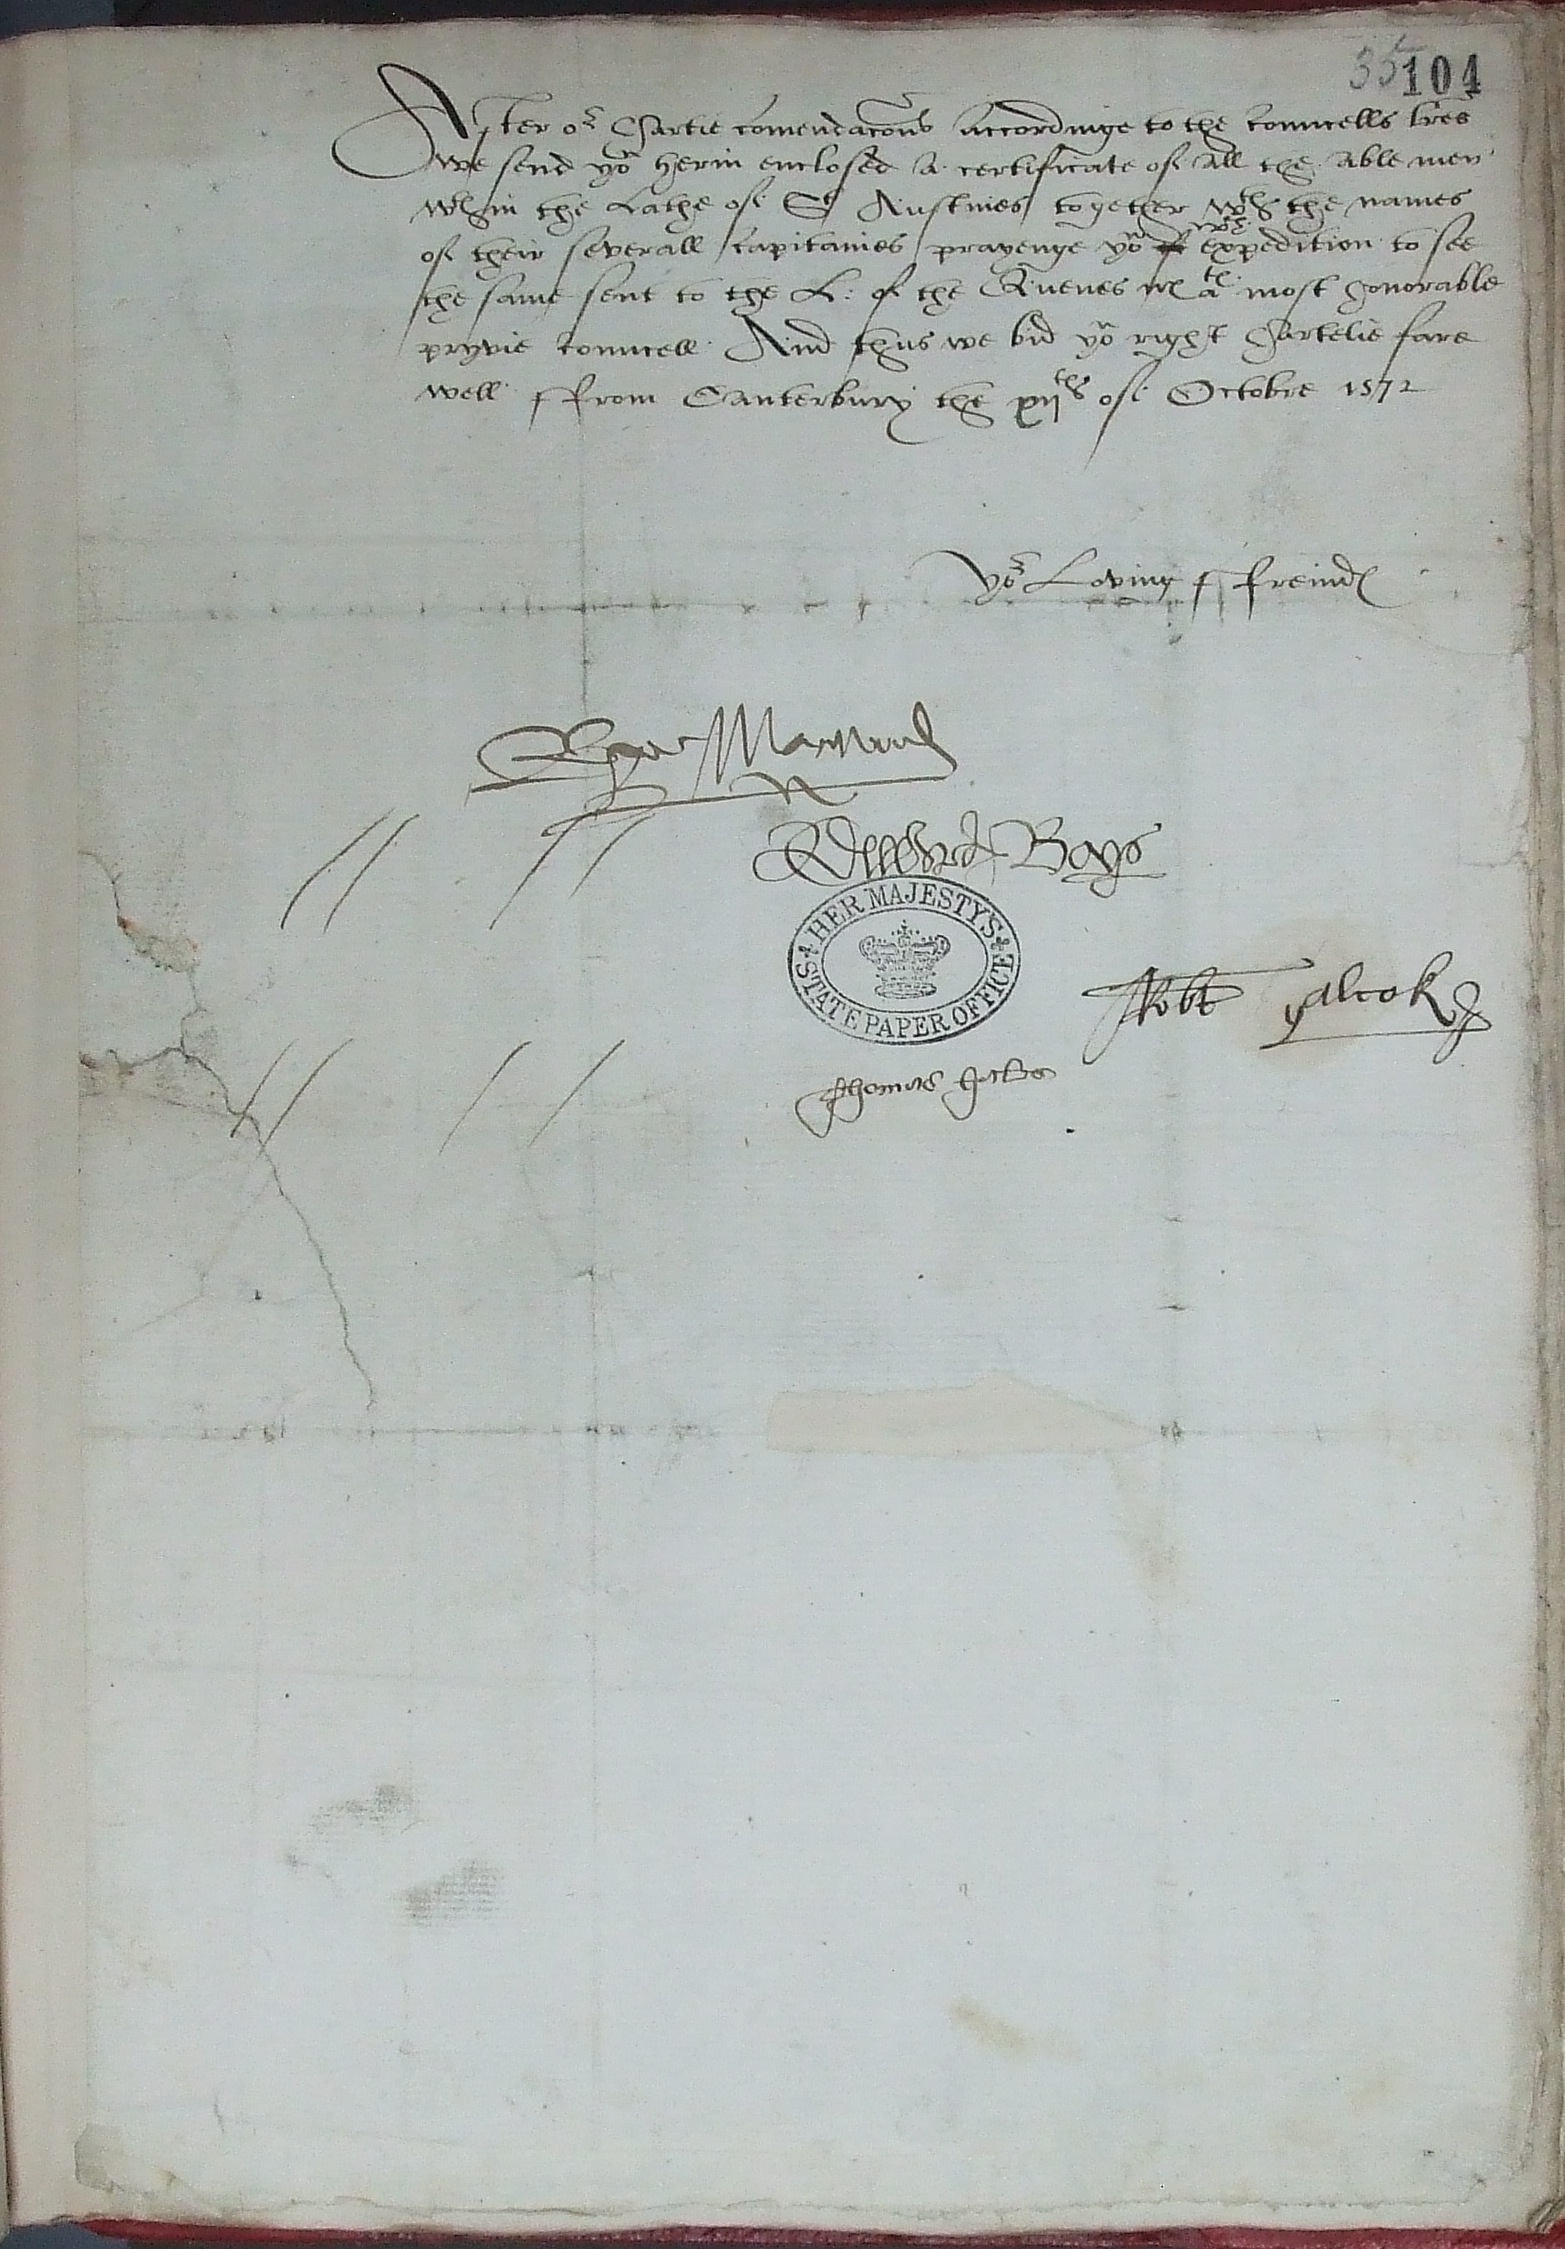 35 104
After or hartie comendacons accordinge to the councells lres
we send yo herin enclosed a certificate of all the able men
wthin the Lathe of St Austines together wth the names
of their severall capitaines prayenge yo wth expedition to see
the same sent to the L: of the Quenes matie most honorable
pryvie councell And thus we bid yo right hartelie fare
well ffrom Canterbury the xijth of Octobre 1572
yor Loving ffreinds
Roger Manwood
Boys
HER MAJESTY'S STATE PAPER OFFICE
Robt Alcok
Thomas